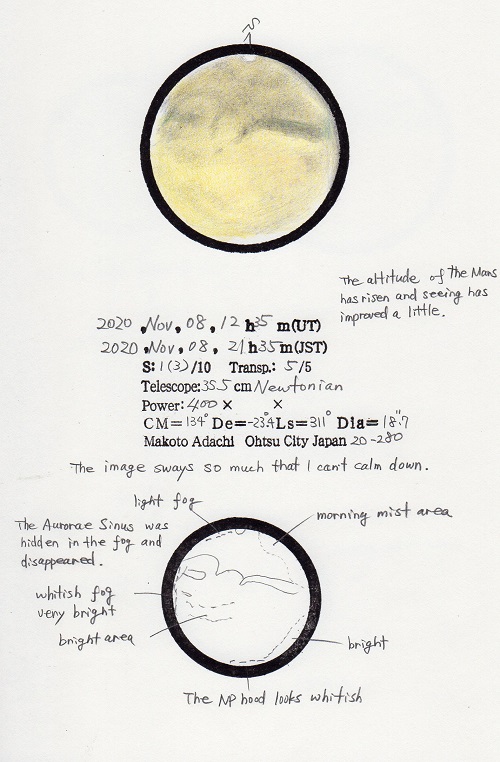 S
The altitude of the Mars
has risen and seeing has
improved a little.
2020, Nov, 08, 12 h 35 m(UT)
2020, Nov, 08, 21 h 35 m(JST)
S: 1(3)/10 Transp.: 5/5
Telescope: 35.5 cm Newtonian
Power: 400 × ×
CM=134° De=-23.4° Ls=311° Dia=18".7
Makoto Adachi Ohtsu City Japan 20-280
The image sways so much that I can't calm down.
light fog
morning mist area
The Aurorae Sinus was
hidden in the fog and
disappeared.
whitish fog
veny bright
bright area
bright
The NP hood looks whitish